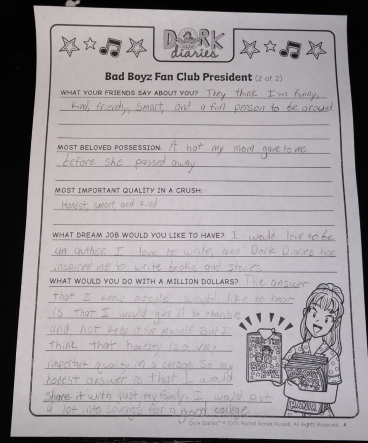 DORK
diaries
Bad Boyz Fan Club President (2 of 2)
WHAT YOUR FRIENDS SAY ABOUT YOU? They think I'm funny,
kind, friendly, smart, and a fun person to be around
MOST BELOVED POSSESSION: A hat my mom gave to me
before she passed away
MOST IMPORTANT QUALITY IN A CRUSH:
Honest, smart, and kind
WHAT DREAM JOB WOULD YOU LIKE TO HAVE? I would love to be
an author. I love to write, and Dork Diaries has
inspired me to write books and stories.
WHAT WOULD YOU DO WITH A MILLION DOLLARS? The answer
that I know people would like to hear
is that I would give it to charities
and not keep it for myself. But I
think that honesty is a very
important quality in a person. So my
honest answer is that I would
share it with just my family. I would put
a lot into savings for a good college.
Dork Diaries® © 2020 Rachel Renée Russell. All Rights Reserved.